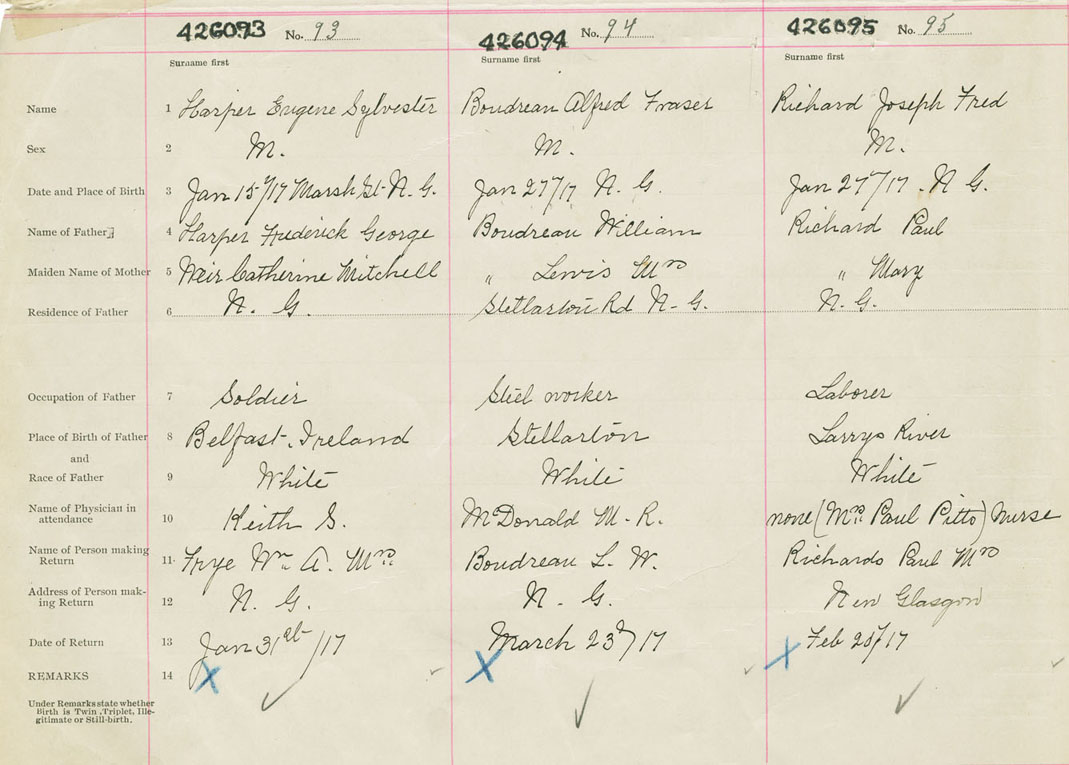 426093 No. 93 426094 No. 94 426095 No. 95
Surname first Surname first Surname first
Name 1 Harper Eugene Sylvester Boudreau Alfred Fraser Richard Joseph Fred
Sex 2 M. M. M.
Date and Place of Birth 3 Jan 15th/17 Marsh St. N. G. Jan 27th/17 N. G. Jan 27th/17. N G.
Name of Father 4 Harper Frederick George Boudreau William Richard Paul
Maiden Name of Mother 5 Weir Catherine Mitchell " Lewis Mrs " Mary
Residence of Father 6 N. G. Stellarton Rd N. G. N. G.
Occupation of Father 7 Soldier Steel worker Laborer
Place of Birth of Father 8 Belfast. Ireland Stellarton Larrys River
and
Race of Father 9 White White White
Name of Physician in
attendance 10 Keith S. McDonald M. R. none (Mrs. Paul Pitts) Nurse
Name of Person making
Return 11. Frye Wm A. Mrs Boudreau L. W. Richards Paul Mrs
Address of Person mak-
ing Return 12 N. G. N. G. New Glasgow
Date of Return 13 Jan 31st/17 March 23d/17 Feb 28/17
REMARKS 14
Under Remarks state whether
Birth is Twin, Triplet, Ille-
gitimate or Still-birth.